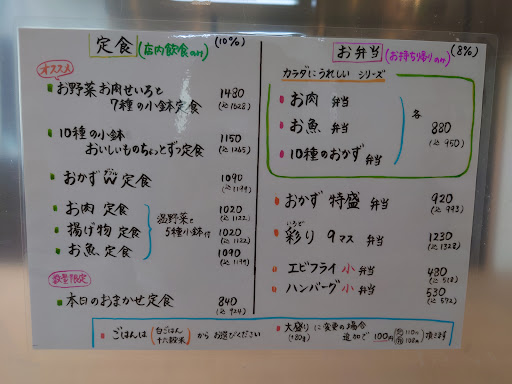 定食(店内飲食のみ)(10%)
オススメ
お野菜お肉せいろと
7種の小鉢定食 1480
(込1628)
10種の小鉢 1150
おいしいものちょっとずつ定食 (込1265)
おかずW定食 1090
ダブル
(込1199)
お肉 定食 1020
(込1122)
揚げ物 定食 1020
(込1122)
お魚 定食 1090
(込1199)
温野菜と
5種小鉢付
数量限定
本日のおまかせ定食 840
(込924)
お弁当(お持ち帰りのみ)(8%)
カラダにうれしい シリーズ
お肉 弁当
お魚 弁当
10種のおかず 弁当
各
880
(込950)
おかず 特盛 弁当 920
(込993)
いろど
彩り 9マス 弁当 1230
(込1328)
エビフライ 小 弁当 480
(込518)
ハンバーグ 小 弁当 530
(込572)
ごはんは(白ごはん
十六穀米)からお選びください
大盛りに変更の場合
(+80g) 追加で 100円 110円
108円 頂きます